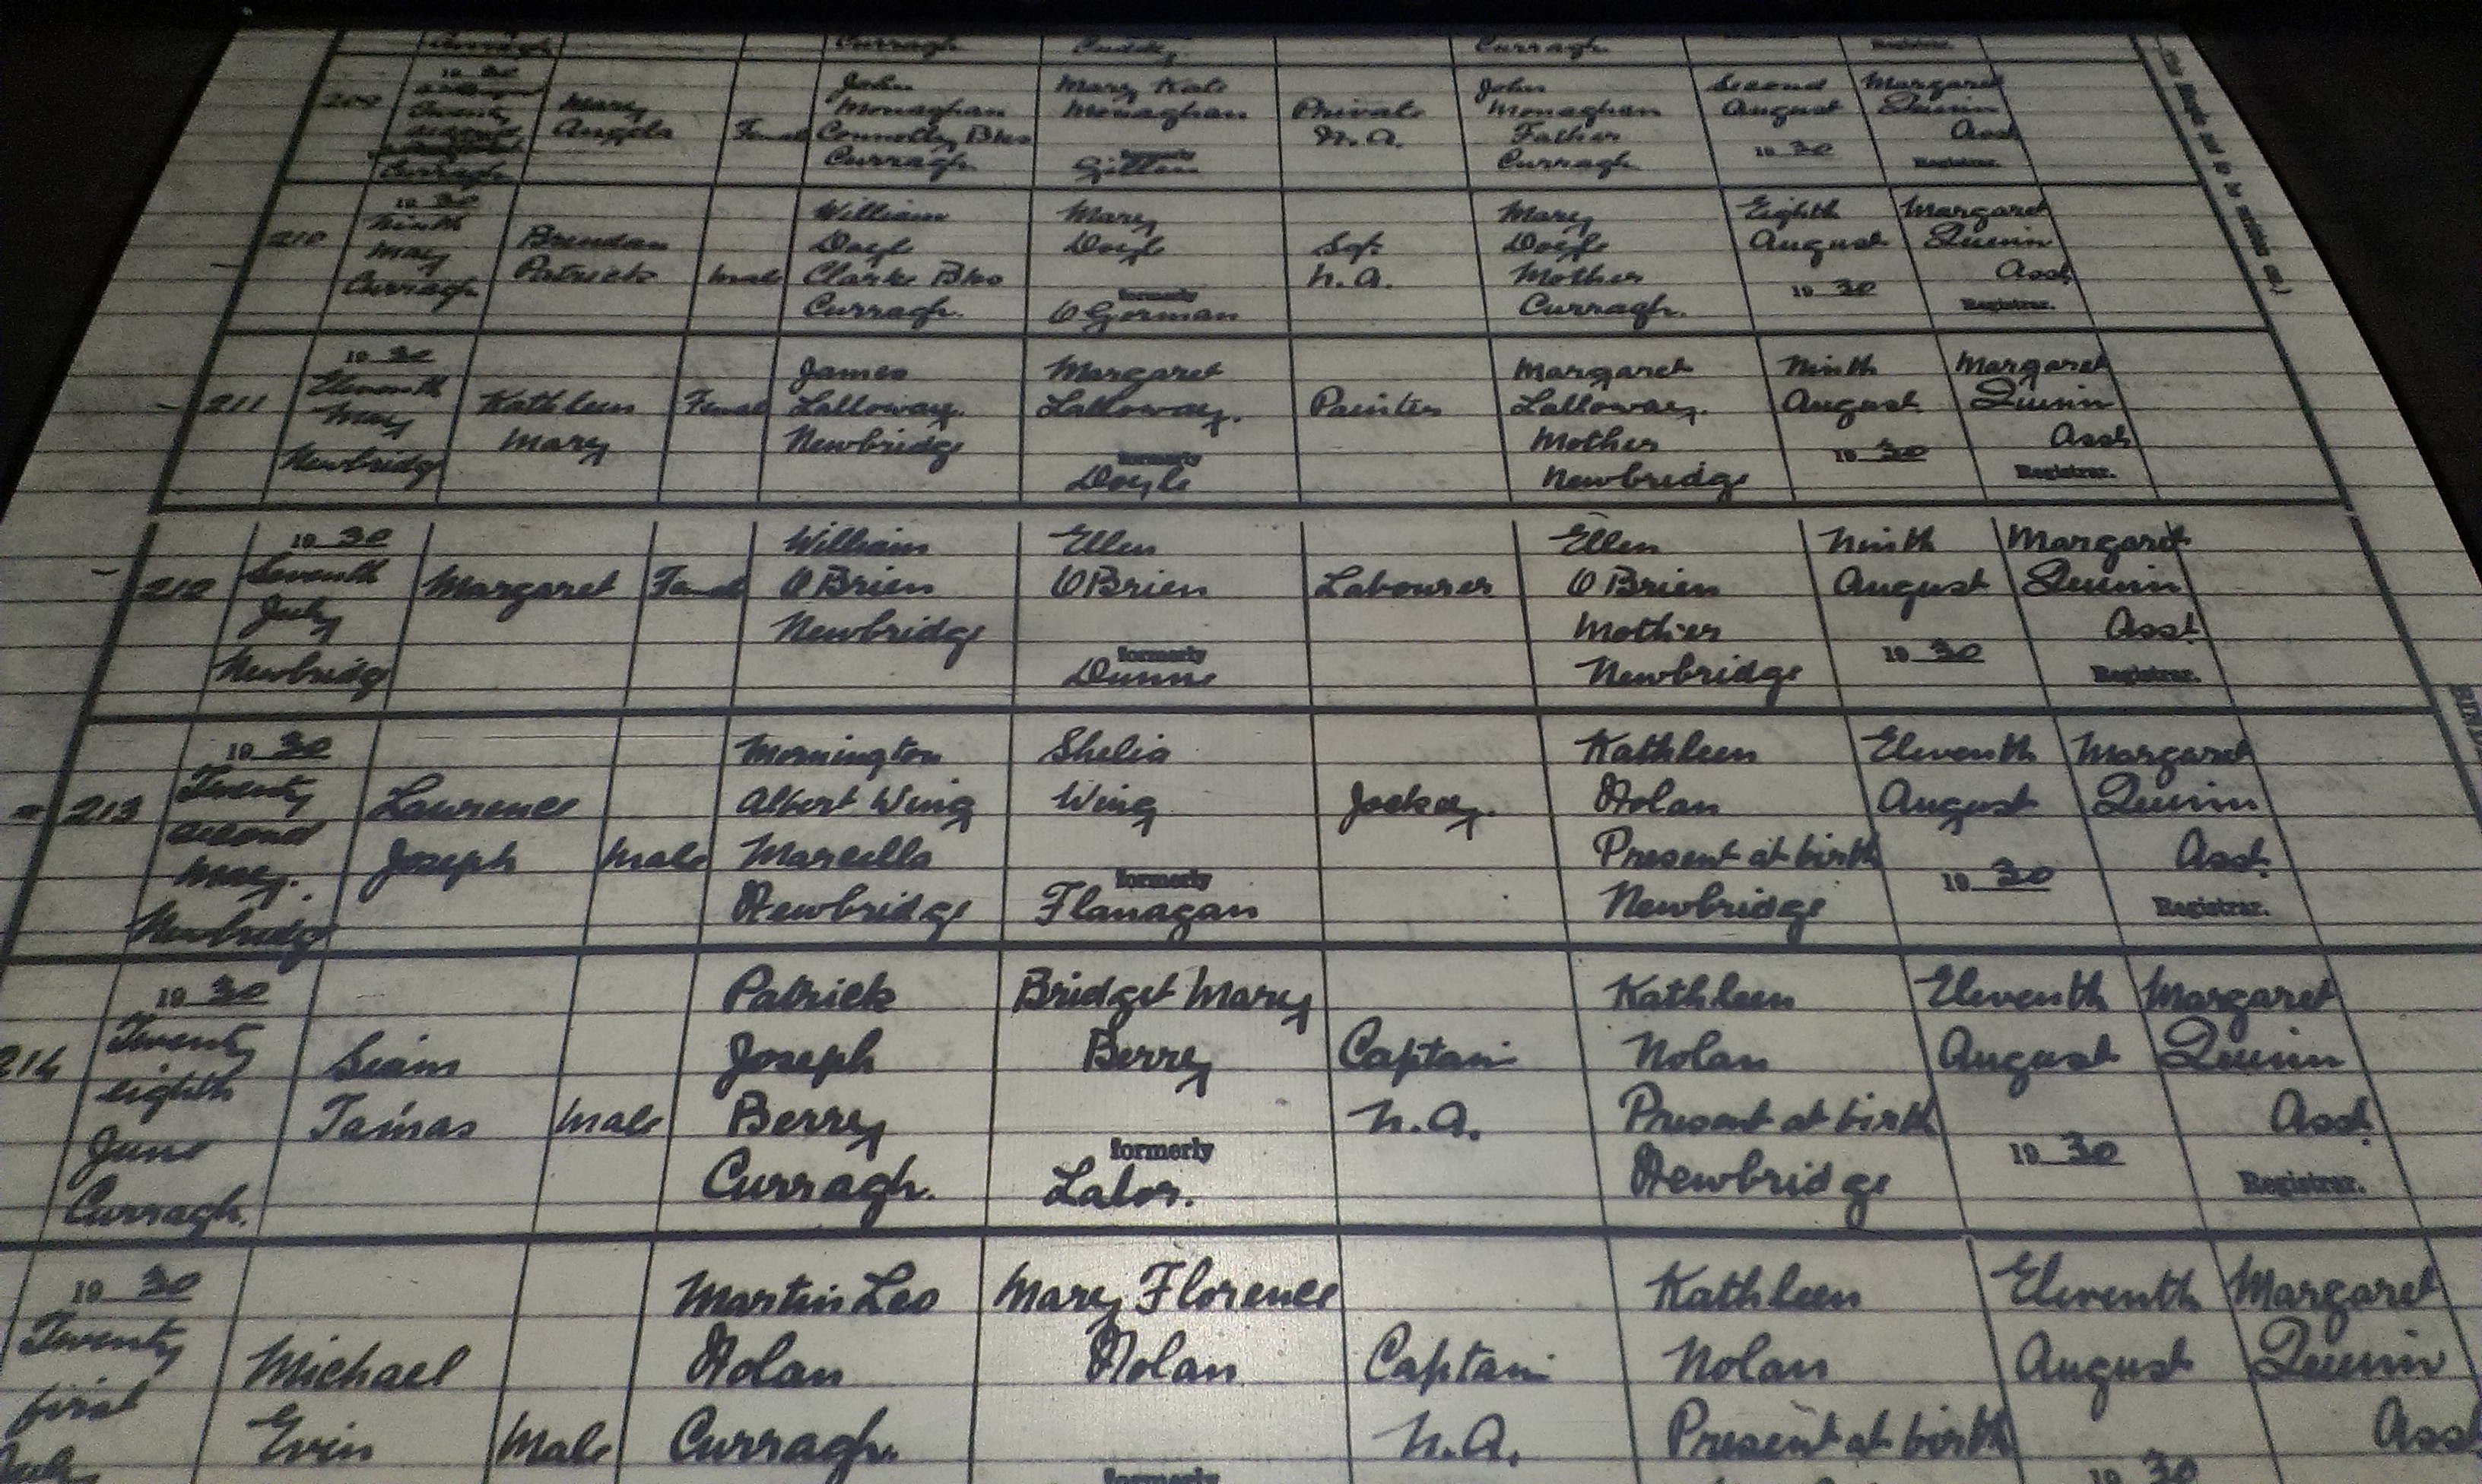 Curragh Cuddy Curragh Registrar.
209
1930
Twenty
Curragh
Mary
Angela
Female
John
Monaghan
Connolly Bks
Curragh
Mary Kate
Monaghan
formerly
Private
N.A.
John
Monaghan
Father
Curragh
Second
August
1930
Margaret
Quinn
Asst
Registrar.
210
1930
Ninth
May
Curragh
Brendan
Patrick
Male
William
Doyle
Clarke Bks
Curragh.
Mary
Doyle
formerly
O'Gorman
Sgt.
N.A.
Mary
Doyle
Mother
Curragh.
Eighth
August
1930
Margaret
Quinn
Asst
Registrar.
211
1930
Eleventh
May
Newbridge
Kathleen
Mary
Female
James
Lalloway.
Newbridge
Margaret
Lalloway.
formerly
Doyle
Painter
Margaret
Lalloway.
Mother
Newbridge
Ninth
August
1930
Margaret
Quinn
Asst
Registrar.
212
1930
Seventh
July
Newbridge
Margaret
Female
William
O'Brien
Newbridge
Ellen
O'Brien
formerly
Dunne
Labourer
Ellen
O'Brien
Mother
Newbridge
Ninth
August
1930
Margaret
Quinn
Asst.
Registrar.
213
1930
Twenty
second
May.
Newbridge
Lawrence
Joseph
Male
Mornington
Albert Wing
Marcella
Newbridge
Shelia
Wing
formerly
Flanagan
Jockey.
Kathleen
Nolan
Present at birth
Newbridge
Eleventh
August
1930
Margaret
Quinn
Asst.
Registrar.
214
1930
Twenty
eighth
June
Curragh.
Seám
Tamás
Male
Patrick
Joseph
Berrey
Curragh.
Bridget Mary
Berrey
formerly
Lalor.
Captain
N.A.
Kathleen
Nolan
Present at birth
Newbridge
Eleventh
August
1930
Margaret
Quinn
Asst.
Registrar.
1930
Twenty
first
July
Michael
Evin
Male
Martin Leo
Nolan
Curragh.
Mary Florence
Nolan
formerly
Captain
N.A.
Kathleen
Nolan
Present at birth
Eleventh
August
1930
Margaret
Quinn
Asst